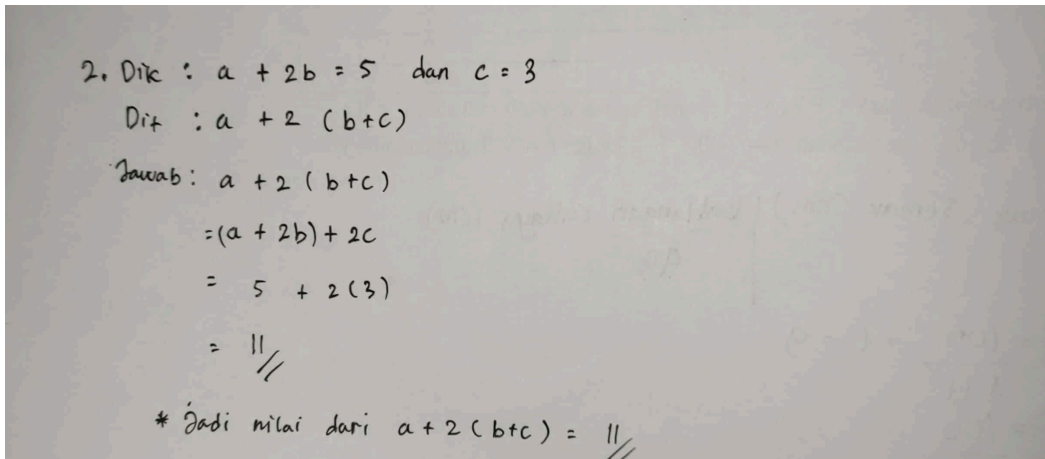 2. Dik : a + 2b = 5 dan c = 3
Dit : a + 2 (b+c)
Jawab : a + 2 (b+c)
=(a + 2b) + 2c
= 5 + 2(3)
= 11
* Jadi nilai dari a + 2 (b+c) = 11